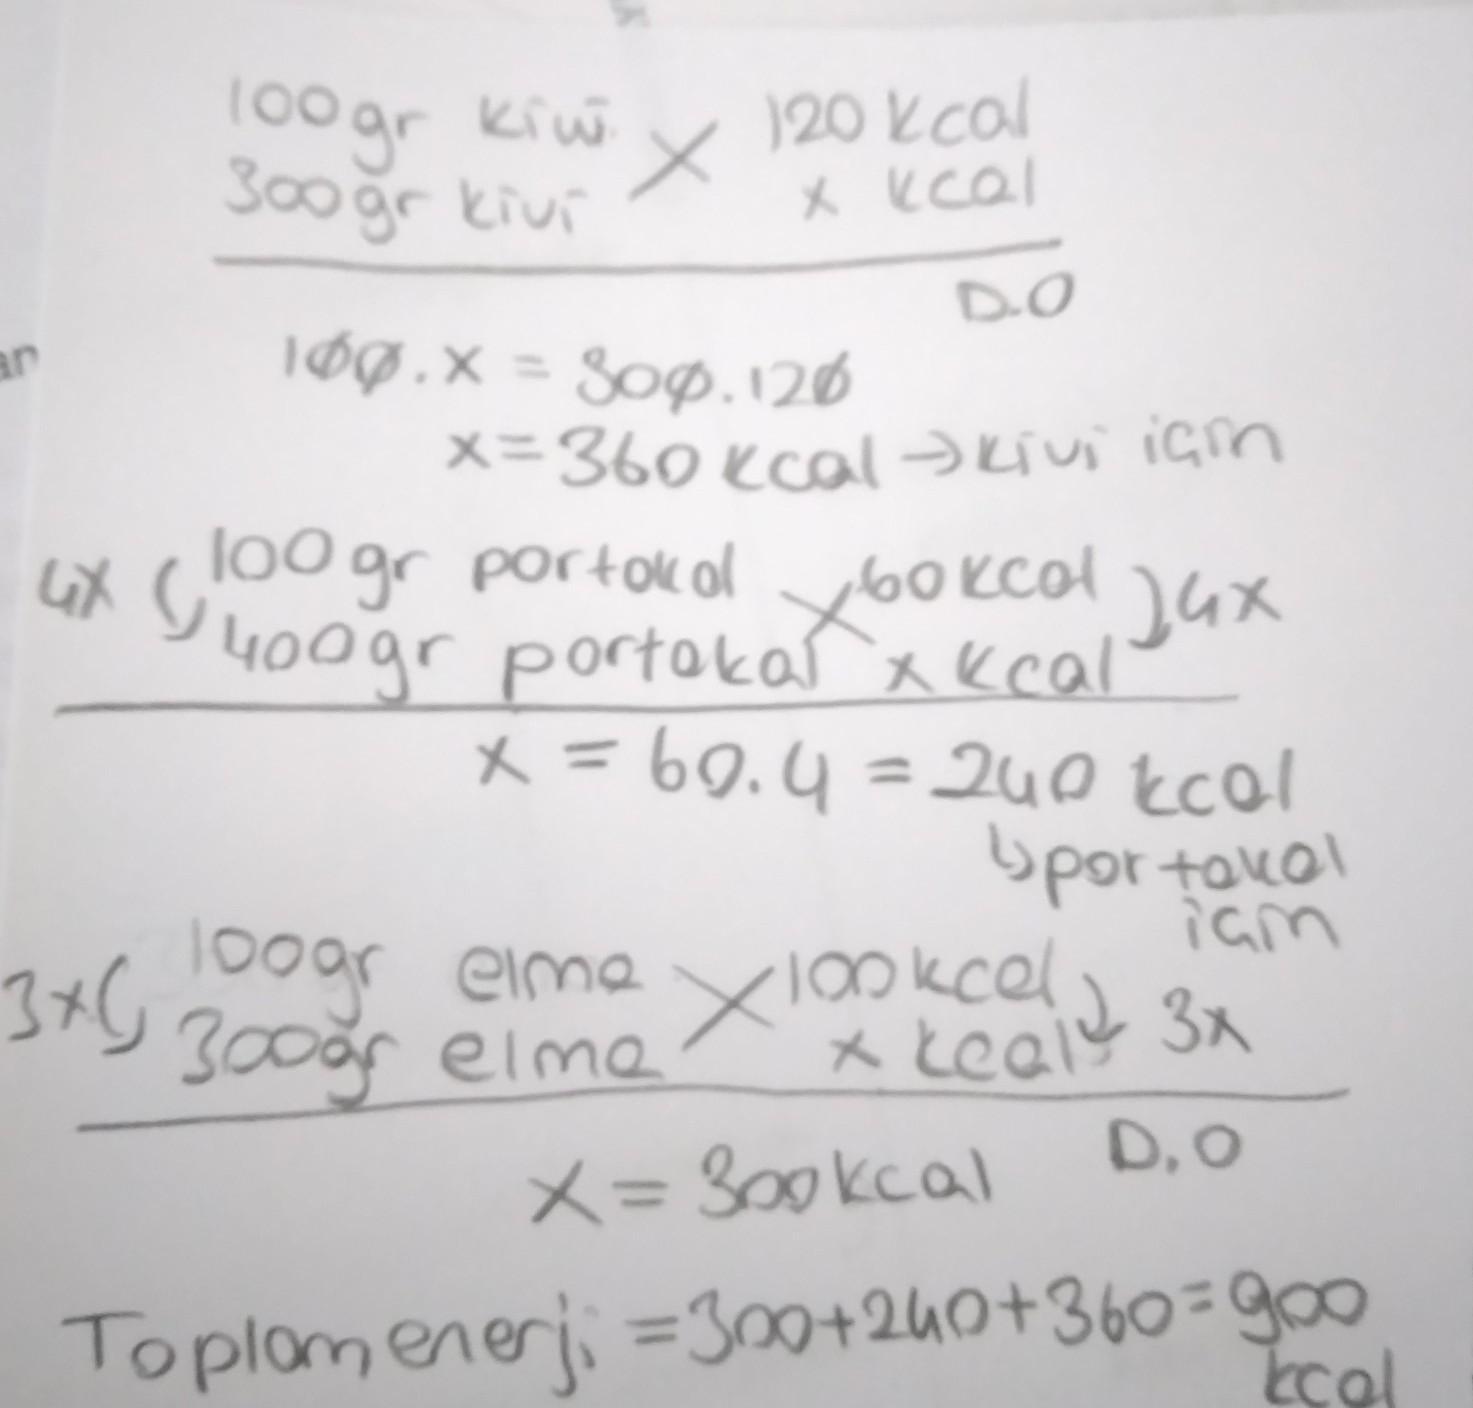 100gr kiwi 120 kcal
300gr kivi x kcal
D.O
100.x = 300.120
x = 360 kcal → kivi için
4x 100gr portakal 60 kcal 4x
400gr portakal x kcal
x = 60.4 = 240 kcal
↳ portakal
için
3x 100gr elma 100 kcal 3x
300gr elma x kcal
D.O
x = 300 kcal
Toplam enerji = 300+240+360 = 900
kcal